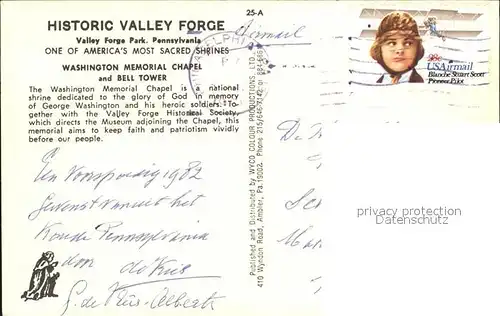 HISTORIC VALLEY FORGE
Valley Forge Park, Pennsylvania
ONE OF AMERICA'S MOST SACRED SHRINES
WASHINGTON MEMORIAL CHAPEL
and BELL TOWER
The Washington Memorial Chapel is a national
shrine dedicated to the glory of God in memory
of George Washington and his heroic soldiers. To-
gether with the Valley Forge Historical Society,
which directs the Museum adjoining the Chapel, this
memorial aims to keep faith and patriotism vividly
before our people.
Een Voorspoedig 1982
Gewenst vanuit het
Koude Pennsylvania
door de Kuis
G. de Kuis-Alberts
25-A
Airmail
Published and Distributed by WYCO COLOUR PRODUCTIONS, LTD.
410 Wyndon Road, Ambler, Pa. 19002. Phone 215/646
28c
USAirmail
Blanche Stuart Scott
Pioneer Pilot
privacy protection
watermark